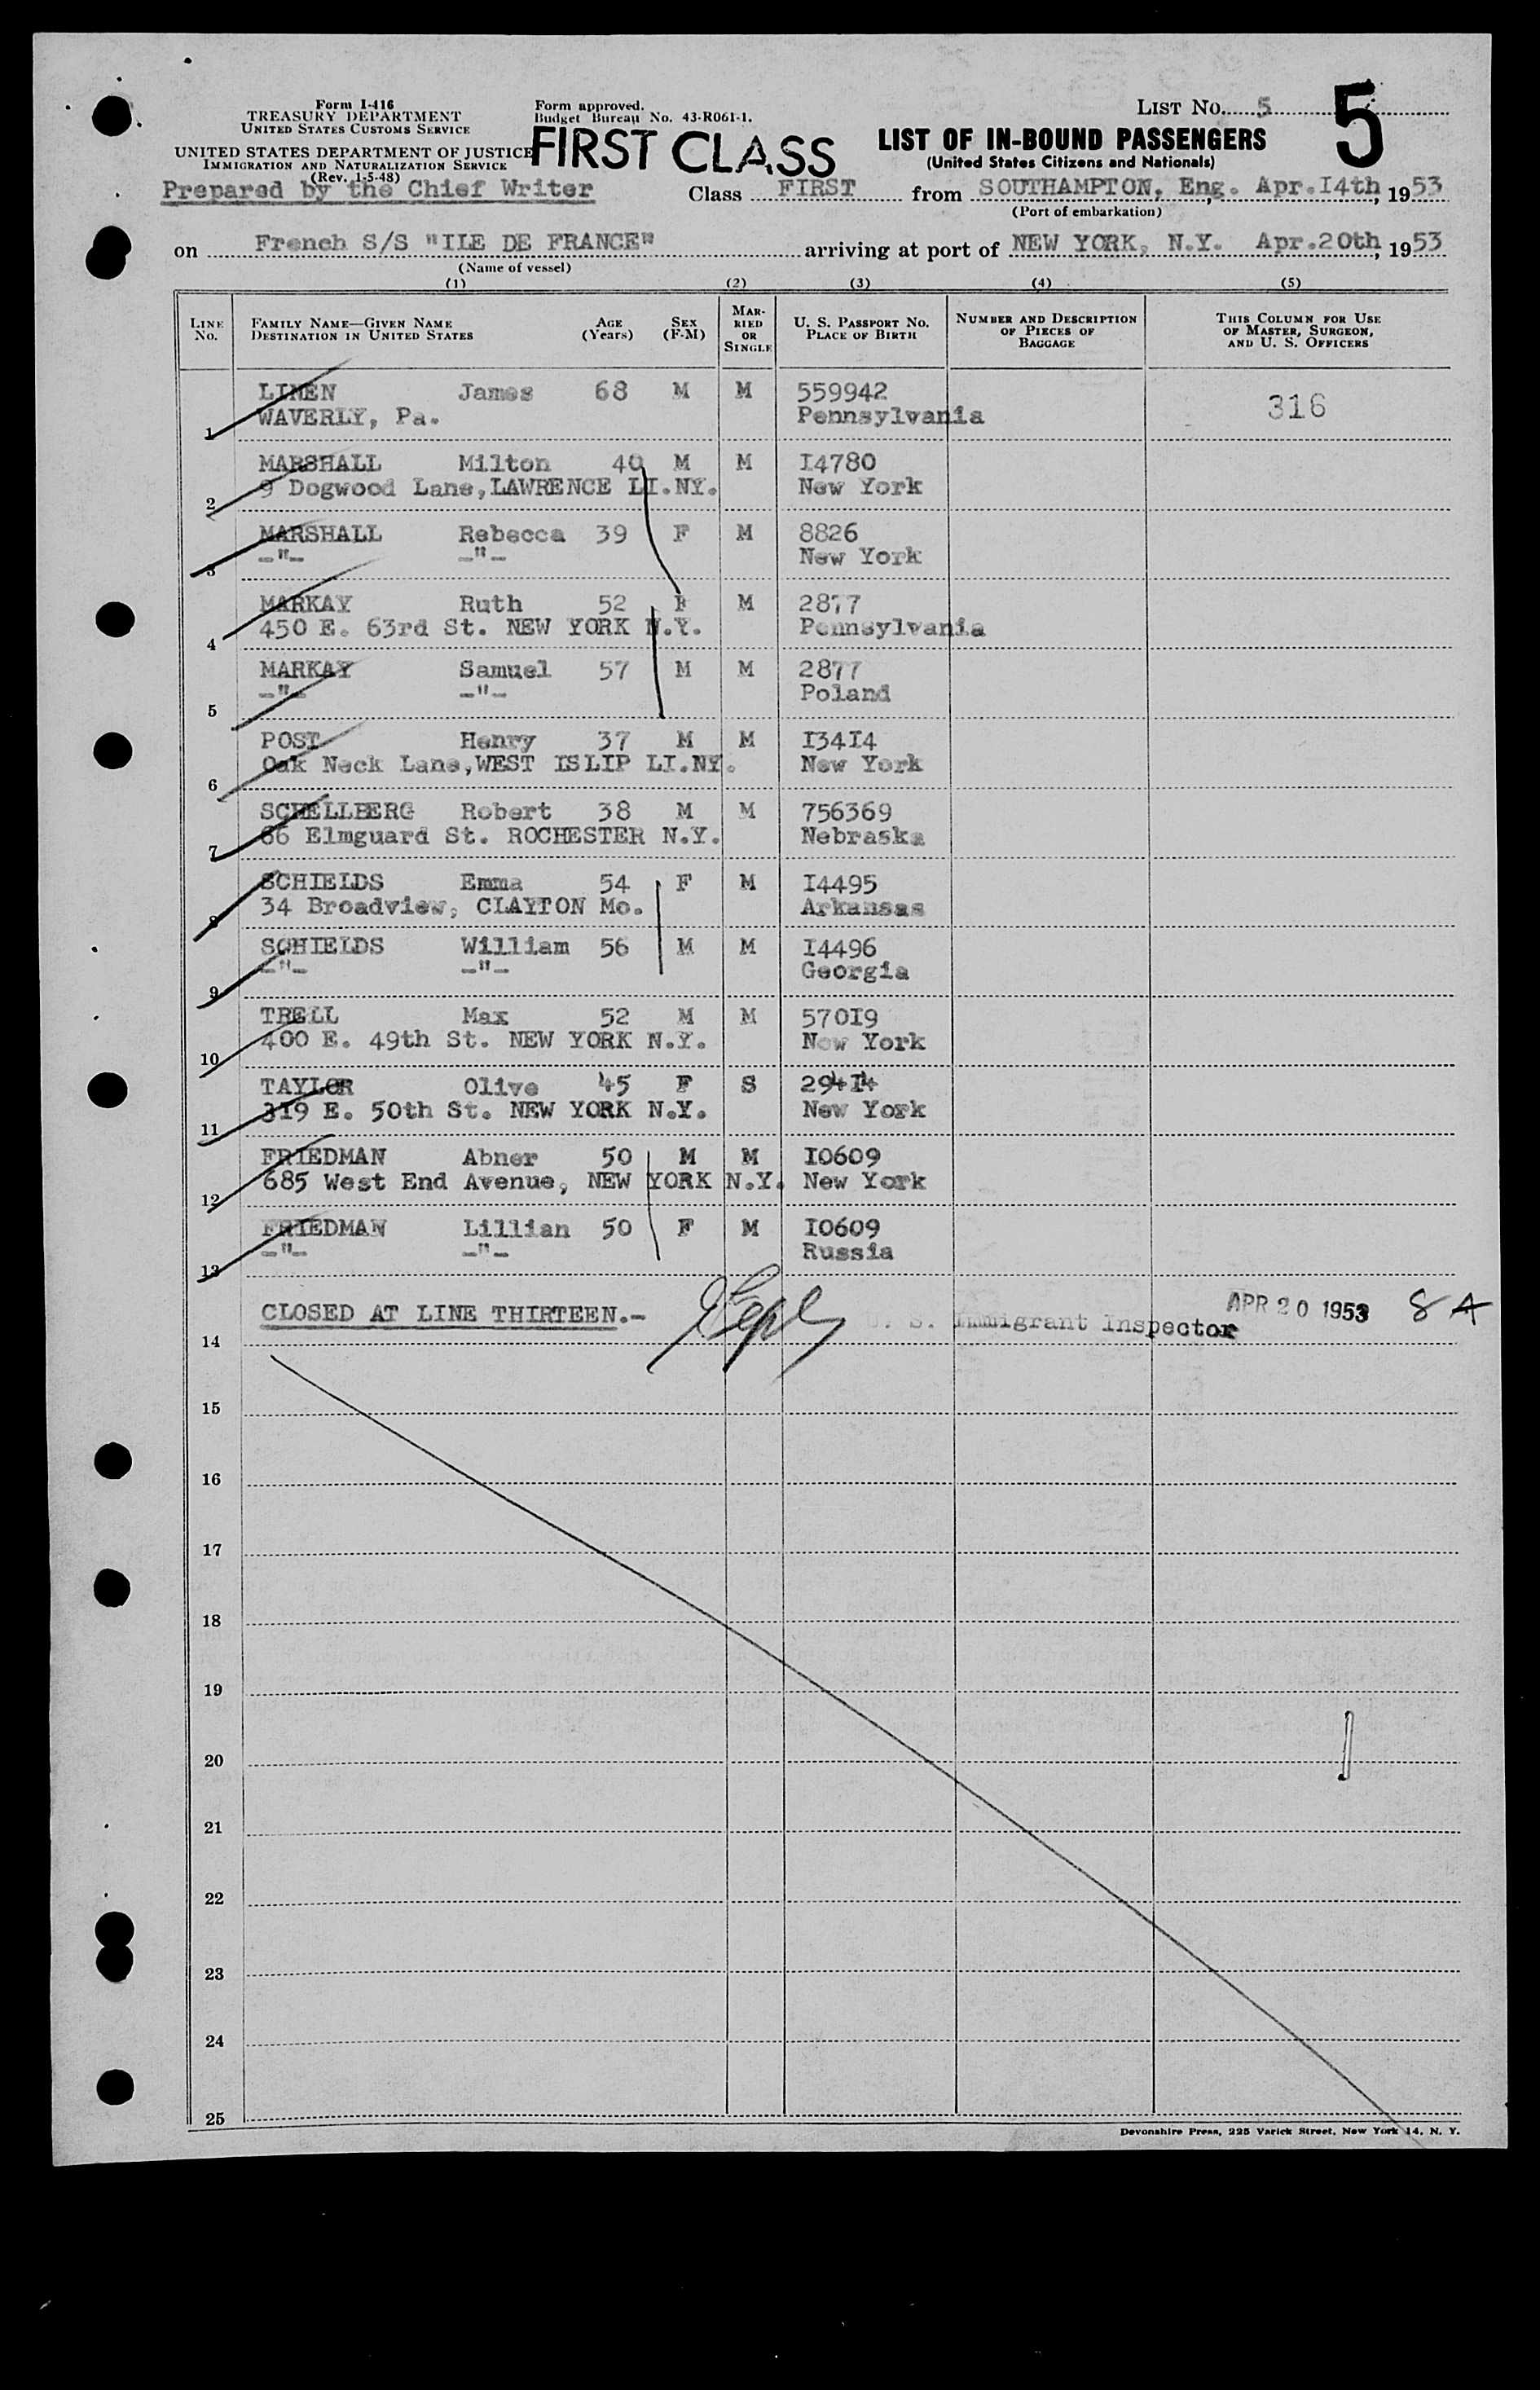 Form I-416
TREASURY DEPARTMENT
UNITED STATES CUSTOMS SERVICE
UNITED STATES DEPARTMENT OF JUSTICE
IMMIGRATION AND NATURALIZATION SERVICE
(Rev. 1-5-48)
Prepared by the Chief Writer
Form approved.
Budget Bureau No. 43-R061-1.
FIRST CLASS
LIST No. 5
5
LIST OF IN-BOUND PASSENGERS
(United States Citizens and Nationals)
Class FIRST from SOUTHAMPTON, Eng. Apr.I4th, 1953
(Port of embarkation)
on French S/S "ILE DE FRANCE" arriving at port of NEW YORK, N.Y. Apr.20th, 1953
(Name of vessel)
(1) (2) (3) (4) (5)
LINE No. FAMILY NAME—GIVEN NAME DESTINATION IN UNITED STATES AGE (Years) SEX (F-M) MARRIED OR SINGLE U. S. PASSPORT NO. PLACE OF BIRTH NUMBER AND DESCRIPTION OF PIECES OF BAGGAGE THIS COLUMN FOR USE OF MASTER, SURGEON, AND U. S. OFFICERS
LINEN James 68 M M 559942 316
1 WAVERLY, Pa. Pennsylvania
MARSHALL Milton 40 M M I4780
2 9 Dogwood Lane,LAWRENCE LI.NY. New York
MARSHALL Rebecca 39 F M 8826
3 -"- -"- New York
MARKAY Ruth 52 F M 2877
4 450 E. 63rd St. NEW YORK N.Y. Pennsylvania
MARKAY Samuel 57 M M 2877
5 -"- -"- Poland
POST Henry 37 M M I34I4
6 Oak Neck Lane,WEST ISLIP LI.NY. New York
SCHELLBERG Robert 38 M M 756369
7 66 Elmguard St. ROCHESTER N.Y. Nebraska
SCHIELDS Emma 54 F M I4495
8 34 Broadview, CLAYTON Mo. Arkansas
SCHIELDS William 56 M M I4496
9 -"- -"- Georgia
TRELL Max 52 M M 570I9
10 400 E. 49th St. NEW YORK N.Y. New York
TAYLOR Olive 45 F S 294I4
11 319 E. 50th St. NEW YORK N.Y. New York
FRIEDMAN Abner 50 M M I0609
12 685 West End Avenue, NEW YORK N.Y. New York
FRIEDMAN Lillian 50 F M I0609
13 -"- -"- Russia
CLOSED AT LINE THIRTEEN.- U. S. Immigrant Inspector APR 20 1953 8 A
14
15
16
17
18
19
20
21
22
23
24
25
Devonshire Press, 225 Varick Street, New York 14, N. Y.